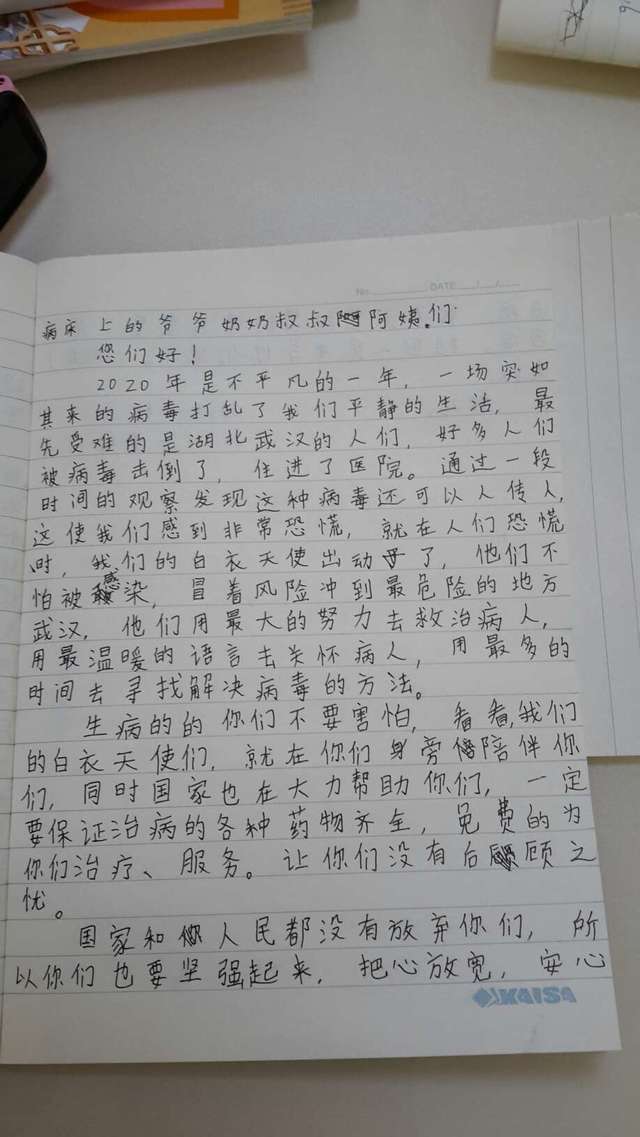 No. DATE / /
病床上的爷爷奶奶叔叔阿姨们
您们好！
2020年是不平凡的一年，一场突如
其来的病毒打乱了我们平静的生活，最
先受难的是湖北武汉的人们，好多人们
被病毒击倒了，住进了医院。通过一段
时间的观察发现这种病毒还可以人传人，
这使我们感到非常恐慌，就在人们恐慌
时，我们的白衣天使出动了，他们不
怕被感染，冒着风险冲到最危险的地方
武汉，他们用最大的努力去救治病人，
用最温暖的语言去关怀病人，用最多的
时间去寻找解决病毒的方法。
生病的的你们不要害怕，看看，我们
的白衣天使们，就在你们身旁陪伴你
们，同时国家也在大力帮助你们，一定
要保证治病的各种药物齐全，免费的为
你们治疗、服务。让你们没有后顾之
忧。
国家和人民都没有放弃你们，所
以你们也要坚强起来，把心放宽，安心
KAISA